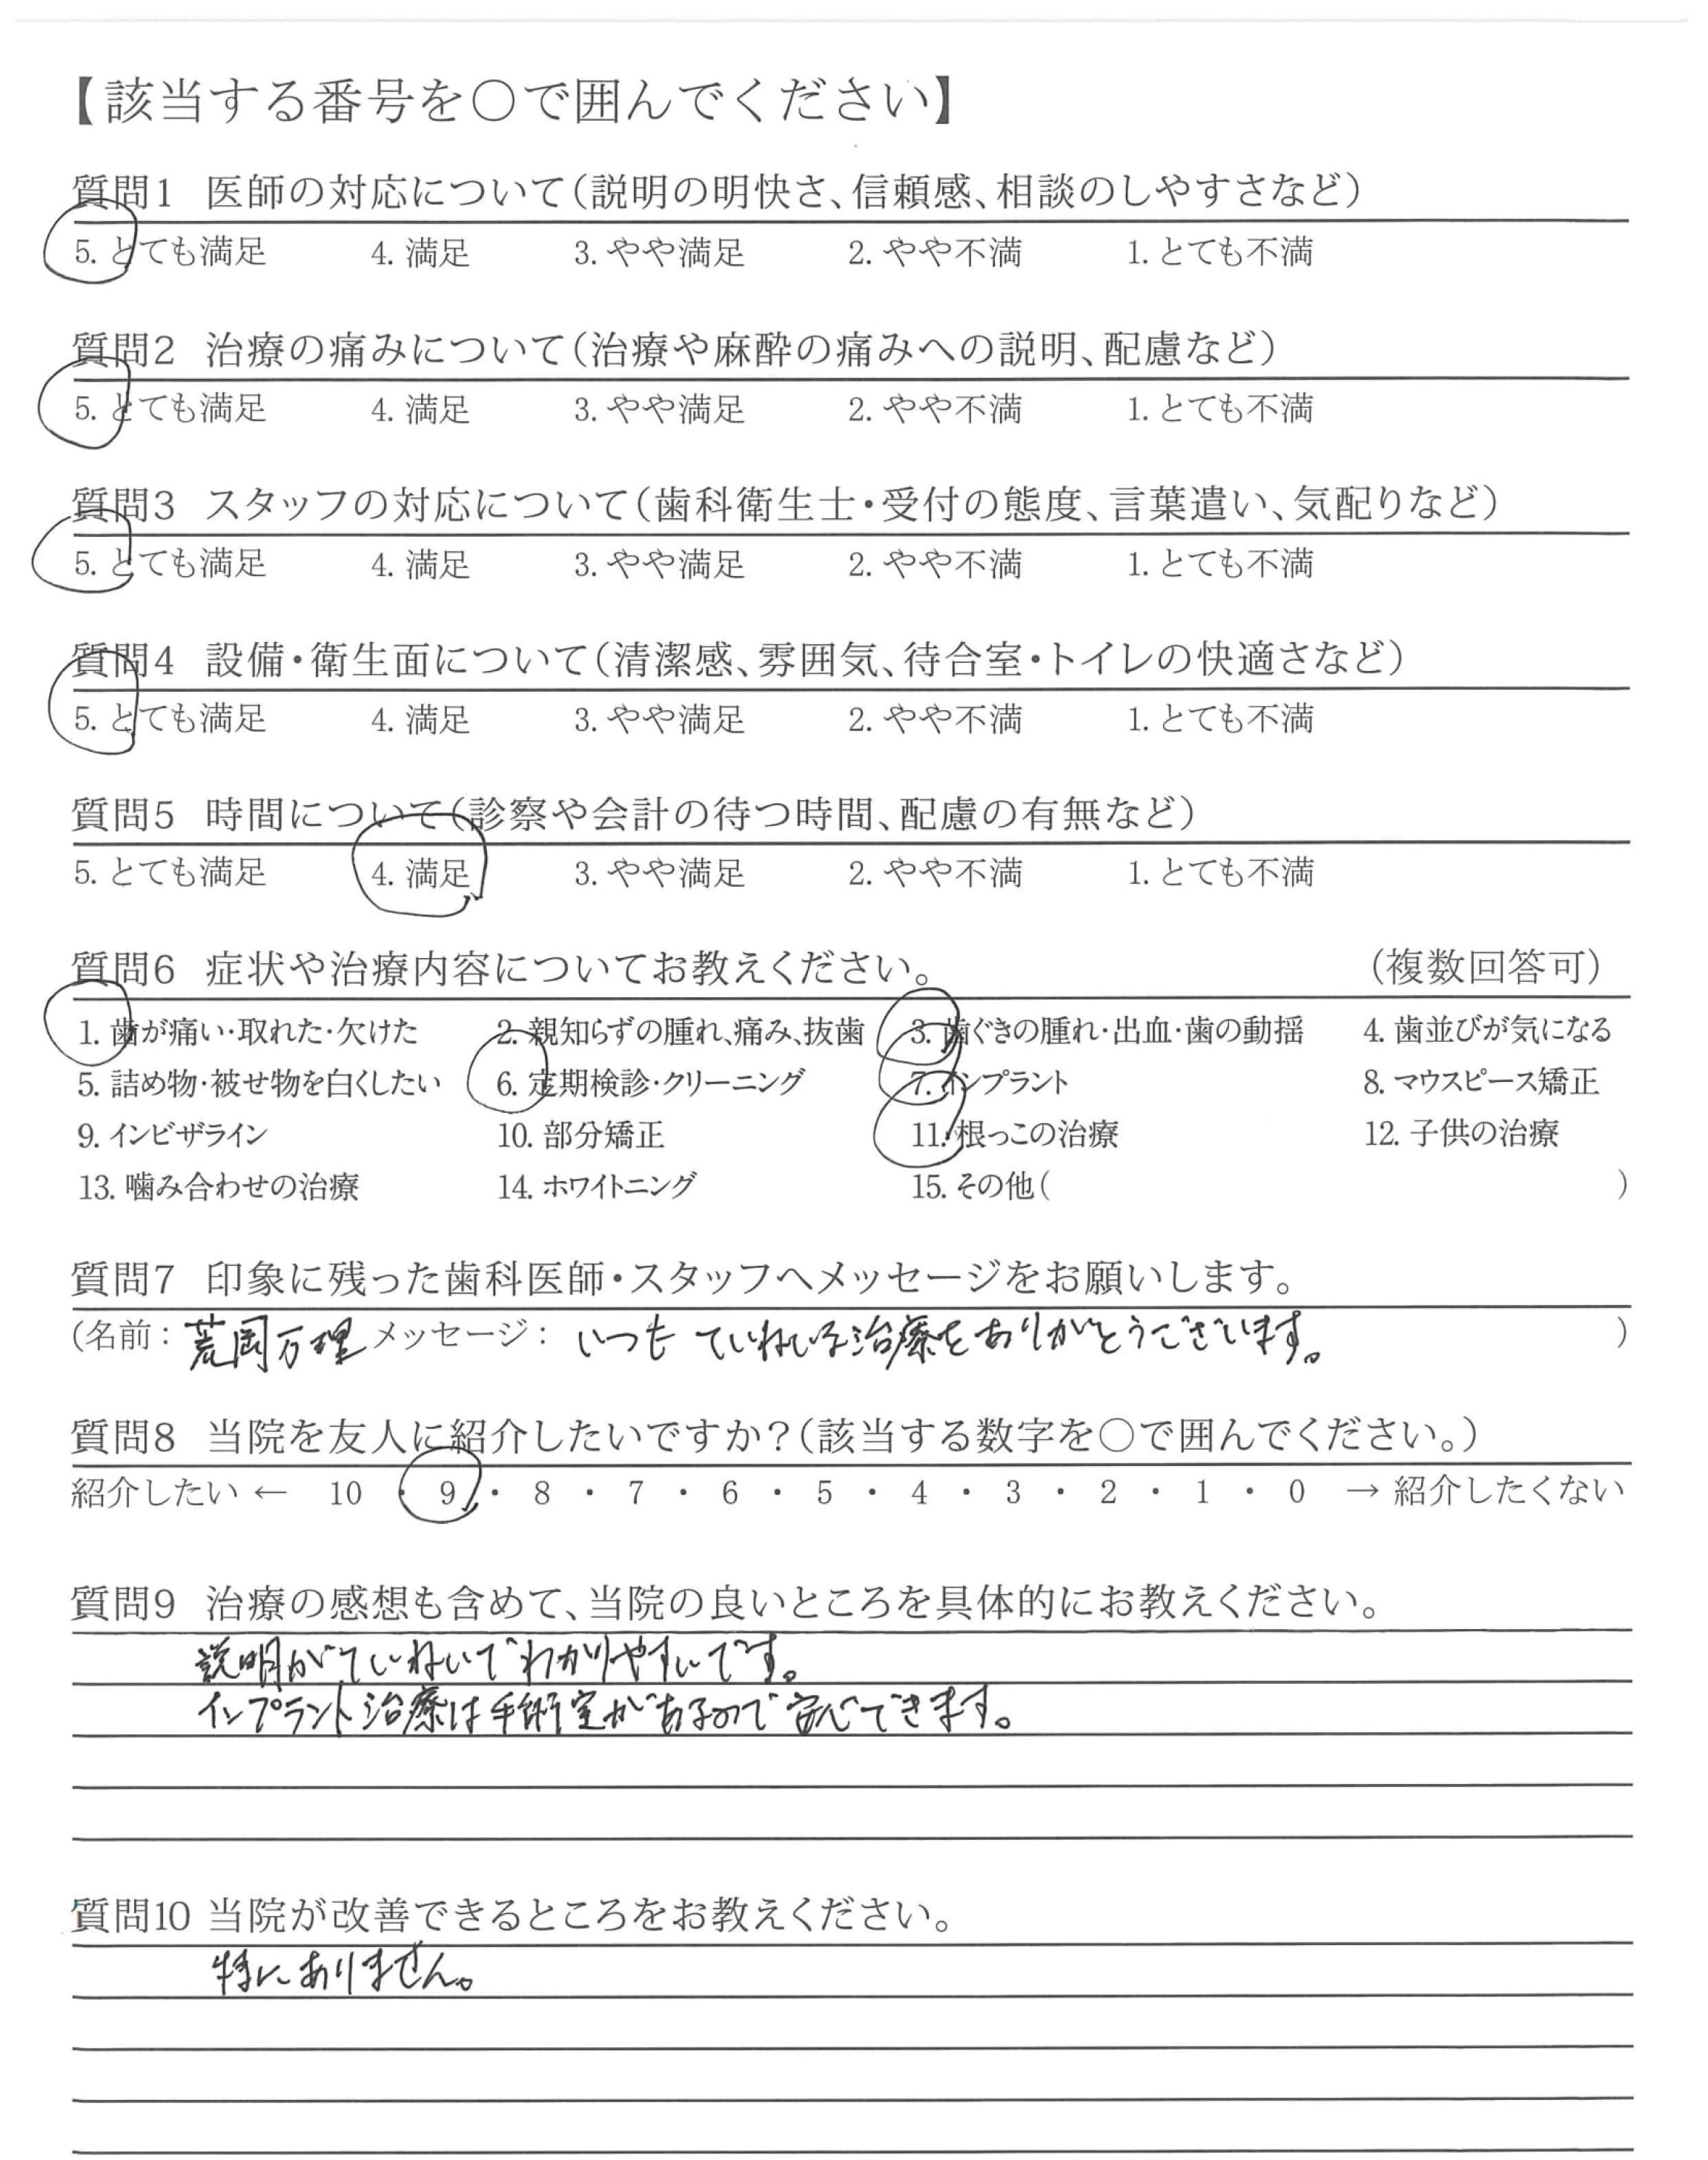 【該当する番号を○で囲んでください】
質問1 医師の対応について(説明の明快さ、信頼感、相談のしやすさなど)
5. とても満足 4. 満足 3. やや満足 2. やや不満 1. とても不満
質問2 治療の痛みについて(治療や麻酔の痛みへの説明、配慮など)
5. とても満足 4. 満足 3. やや満足 2. やや不満 1. とても不満
質問3 スタッフの対応について(歯科衛生士・受付の態度、言葉遣い、気配りなど)
5. とても満足 4. 満足 3. やや満足 2. やや不満 1. とても不満
質問4 設備・衛生面について(清潔感、雰囲気、待合室・トイレの快適さなど)
5. とても満足 4. 満足 3. やや満足 2. やや不満 1. とても不満
質問5 時間について(診察や会計の待つ時間、配慮の有無など)
5. とても満足 4. 満足 3. やや満足 2. やや不満 1. とても不満
質問6 症状や治療内容についてお教えください。 (複数回答可)
1. 歯が痛い・取れた・欠けた 2. 親知らずの腫れ、痛み、抜歯 3. 歯ぐきの腫れ・出血・歯の動揺 4. 歯並びが気になる
5. 詰め物・被せ物を白くしたい 6. 定期検診・クリーニング 7. インプラント 8. マウスピース矯正
9. インビザライン 10. 部分矯正 11. 根っこの治療 12. 子供の治療
13. 噛み合わせの治療 14. ホワイトニング 15. その他( )
質問7 印象に残った歯科医師・スタッフへメッセージをお願いします。
(名前: 荒岡万理 メッセージ: いつも ていねいな治療をありがとうございます。 )
質問8 当院を友人に紹介したいですか?(該当する数字を○で囲んでください。)
紹介したい ← 10 ・ 9 ・ 8 ・ 7 ・ 6 ・ 5 ・ 4 ・ 3 ・ 2 ・ 1 ・ 0 → 紹介したくない
質問9 治療の感想も含めて、当院の良いところを具体的にお教えください。
説明がていねいでわかりやすいです。
インプラント治療は手術室があるので安心できます。
質問10 当院が改善できるところをお教えください。
特にありません。